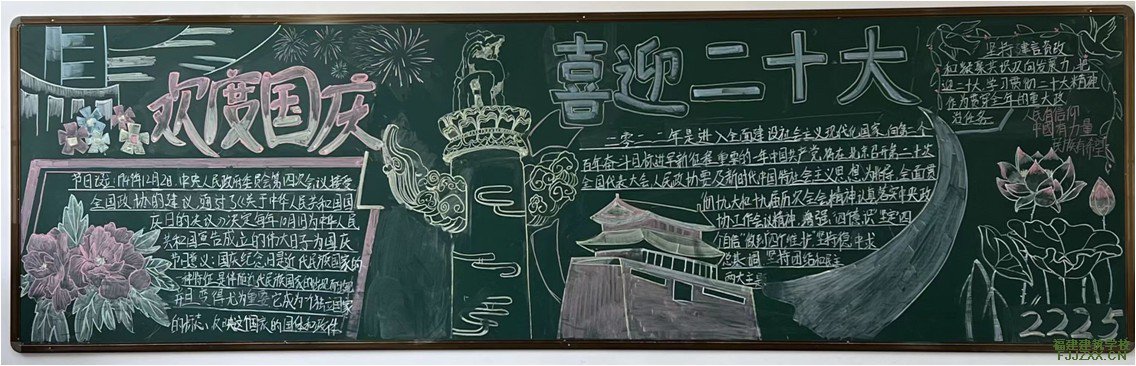 欢度国庆
节日: 1949年12月2日,中央人民政府委员会第四次会议接受
全国政协的建议,通过了《关于中华人民共和国国
庆日的决议》,决定每年10月1日为中华人民
共和国宣告成立的伟大日子为国庆
节日意义:国庆纪念日是近代民族国家的
一种特征是伴随近代民族国家的出现而出现
并且变得尤为重要它成为一个独立国家
的标志,反映这个国庆的国体和政体
喜迎二十大
二零二二年是进入全面建设社会主义现代化国家,向第二个
百年奋斗目标进军新征程重要的一年中国共产党将在北京召开第二十次
全国代表大会,人民政协要及新时代中国特社会主义思想为指导,全面贯
彻九大和十九届六次全会精神认真落实中央政
协工作会议精神,增强"四个意识"坚定四
自信"做到"两个维护"坚持稳中求
总基调,坚持团结和民主
两大主题
坚持建言资政
和凝聚共识双向发力,把
迎二十大学习贯彻二十大精神
作为贯穿全年的重大政
治任务
人民有信仰
中国有力量
民族有希望
2225
福建建筑学校
FJJZXX.CN